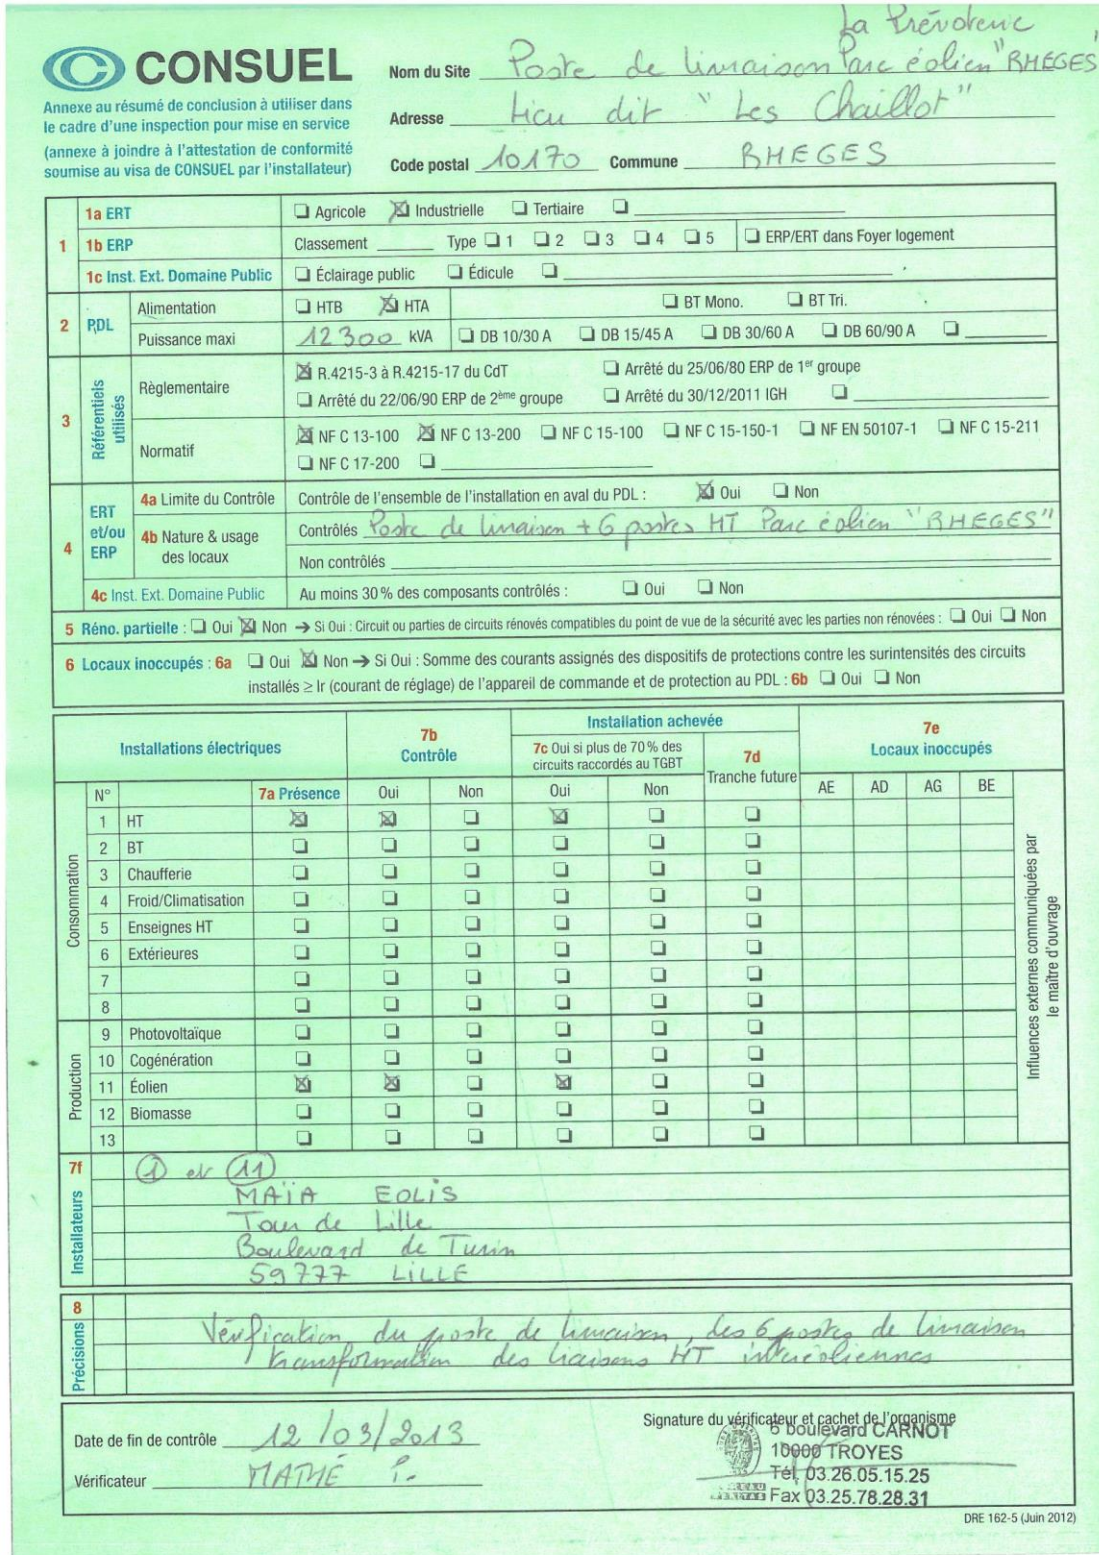 La Prévoterie
CONSUEL
Nom du Site Poste de livraison Parc éolien "RHEGES"
Annexe au résumé de conclusion à utiliser dans
le cadre d'une inspection pour mise en service
(annexe à joindre à l'attestation de conformité
soumise au visa de CONSUEL par l'installateur)
Adresse Lieu dit "Les Chaillot"
Code postal 10170 Commune RHEGES
1 1a ERT ☐ Agricole ☒ Industrielle ☐ Tertiaire ☐
1b ERP Classement Type ☐ 1 ☐ 2 ☐ 3 ☐ 4 ☐ 5 ☐ ERP/ERT dans Foyer logement
1c Inst. Ext. Domaine Public ☐ Éclairage public ☐ Édicule ☐
2 PDL Alimentation ☐ HTB ☒ HTA ☐ BT Mono. ☐ BT Tri.
Puissance maxi 12300 kVA ☐ DB 10/30 A ☐ DB 15/45 A ☐ DB 30/60 A ☐ DB 60/90 A ☐
3 Référentiels utilisés
Règlementaire ☒ R.4215-3 à R.4215-17 du CdT ☐ Arrêté du 25/06/80 ERP de 1er groupe
☐ Arrêté du 22/06/90 ERP de 2ème groupe ☐ Arrêté du 30/12/2011 IGH ☐
Normatif ☒ NF C 13-100 ☒ NF C 13-200 ☐ NF C 15-100 ☐ NF C 15-150-1 ☐ NF EN 50107-1 ☐ NF C 15-211
☐ NF C 17-200 ☐
4 ERT et/ou ERP
4a Limite du Contrôle Contrôle de l'ensemble de l'installation en aval du PDL : ☒ Oui ☐ Non
4b Nature & usage des locaux
Contrôlés Poste de livraison + 6 postes HT Parc éolien "RHEGES"
Non contrôlés
4c Inst. Ext. Domaine Public Au moins 30 % des composants contrôlés : ☐ Oui ☐ Non
5 Réno. partielle : ☐ Oui ☒ Non → Si Oui : Circuit ou parties de circuits rénovés compatibles du point de vue de la sécurité avec les parties non rénovées : ☐ Oui ☐ Non
6 Locaux inoccupés : 6a ☐ Oui ☒ Non → Si Oui : Somme des courants assignés des dispositifs de protections contre les surintensités des circuits
installés ≥ Ir (courant de réglage) de l'appareil de commande et de protection au PDL : 6b ☐ Oui ☐ Non
Installations électriques
7b Contrôle
Installation achevée
7c Oui si plus de 70 % des
circuits raccordés au TGBT
7d
Tranche future
7e
Locaux inoccupés
N° 7a Présence Oui Non Oui Non AE AD AG BE
Consommation
1 HT ☒ ☒ ☐ ☒ ☐ ☐
2 BT ☐ ☐ ☐ ☐ ☐ ☐
3 Chaufferie ☐ ☐ ☐ ☐ ☐ ☐
4 Froid/Climatisation ☐ ☐ ☐ ☐ ☐ ☐
5 Enseignes HT ☐ ☐ ☐ ☐ ☐ ☐
6 Extérieures ☐ ☐ ☐ ☐ ☐ ☐
7 ☐ ☐ ☐ ☐ ☐ ☐
8 ☐ ☐ ☐ ☐ ☐ ☐
Production
9 Photovoltaïque ☐ ☐ ☐ ☐ ☐ ☐
10 Cogénération ☐ ☐ ☐ ☐ ☐ ☐
11 Éolien ☒ ☒ ☐ ☒ ☐ ☐
12 Biomasse ☐ ☐ ☐ ☐ ☐ ☐
13 ☐ ☐ ☐ ☐ ☐ ☐
Influences externes communiquées par
le maître d'ouvrage
7f Installateurs
1 et 11
MAÏA EOLIS
Tour de Lille
Boulevard de Turin
59777 LILLE
8 Précisions
Vérification du poste de livraison, des 6 postes de livraison
transformation des liaisons HT interéoliennes
Date de fin de contrôle 12/03/2013
Vérificateur MATHÉ P.
Signature du vérificateur et cachet de l'organisme
6 boulevard CARNOT
10000 TROYES
Tél. 03.26.05.15.25
BUREAU
VERITAS
Fax 03.25.78.28.31
DRE 162-5 (Juin 2012)